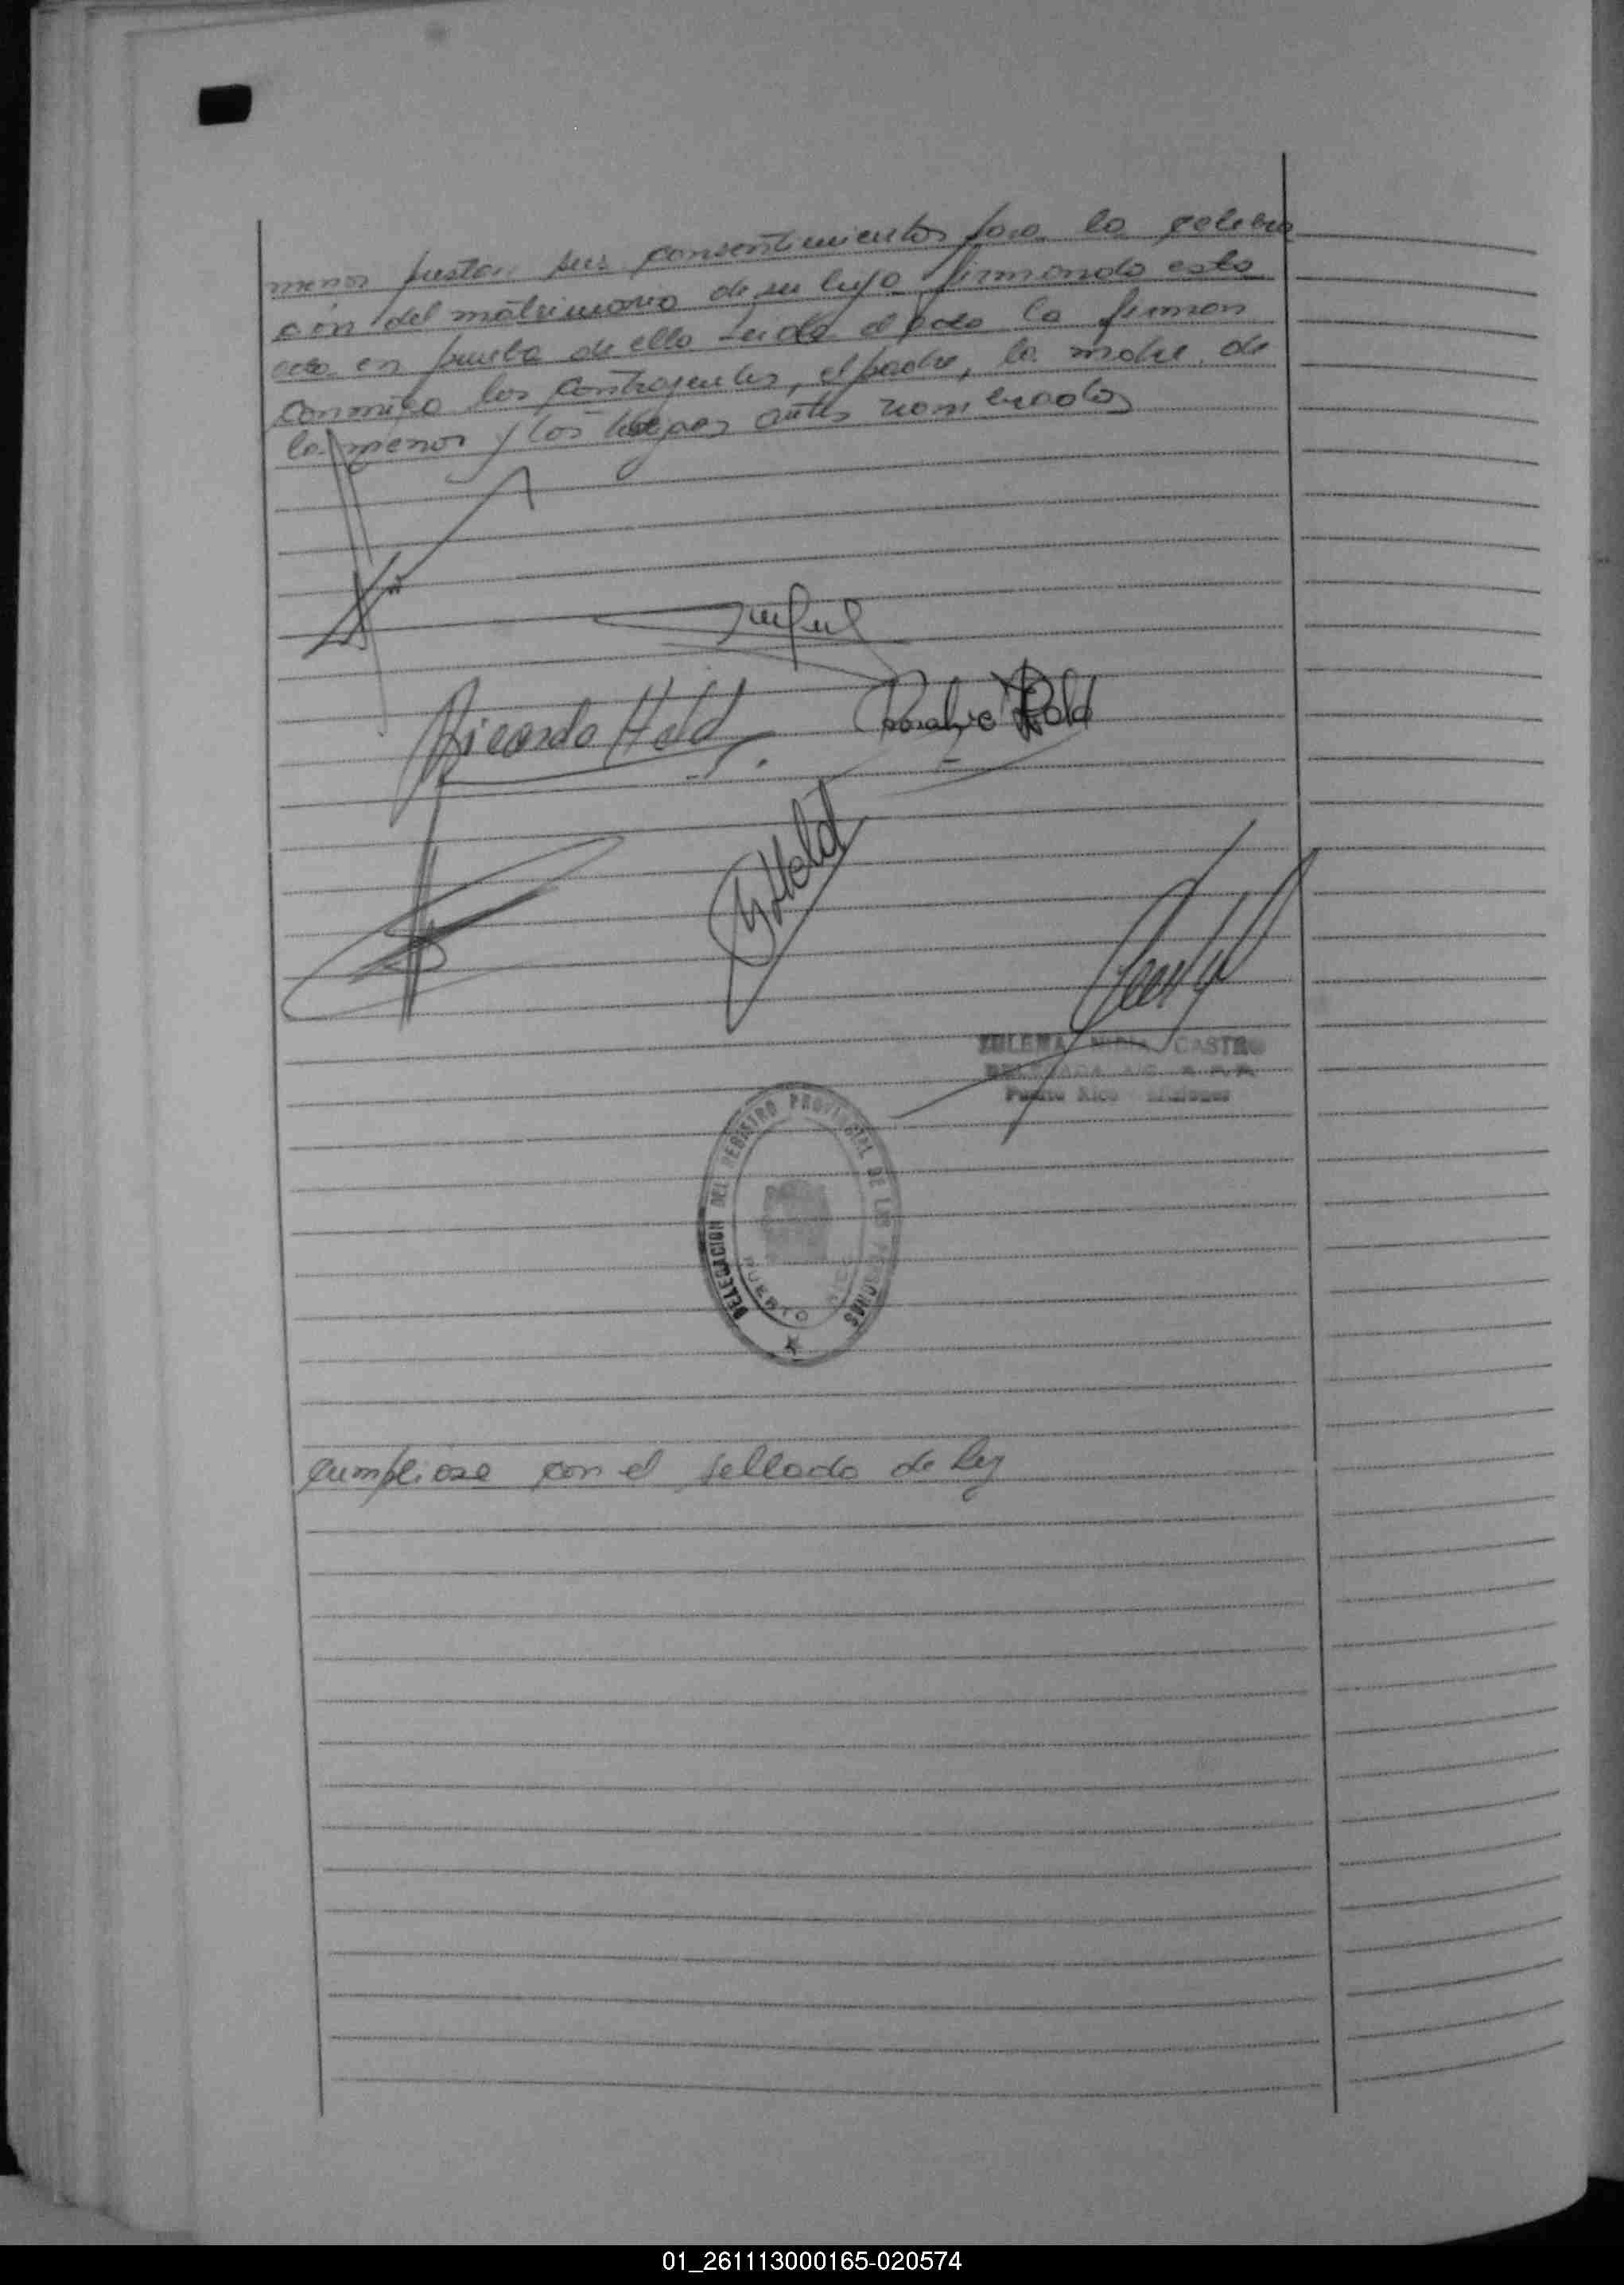 menor prestan sus consentimientos para la celebra
ción del matrimonio de su hija firmando esta
acta en prueba de ello Leida el acta la firman
conmigo los contrayentes, el padre, la madre de
la menor y los testigos antes nombrados
Ricardo Hold
Hold
Hold
ZULEMA NIDIA CASTRO
DELEGADA A/C R. P. P.
Puerto Rico Misiones
DELEGACION DEL REGISTRO PROVINCIAL DE LAS PERSONAS
PUERTO RICO
Cumpliose con el sellado de ley
01_261113000165-020574